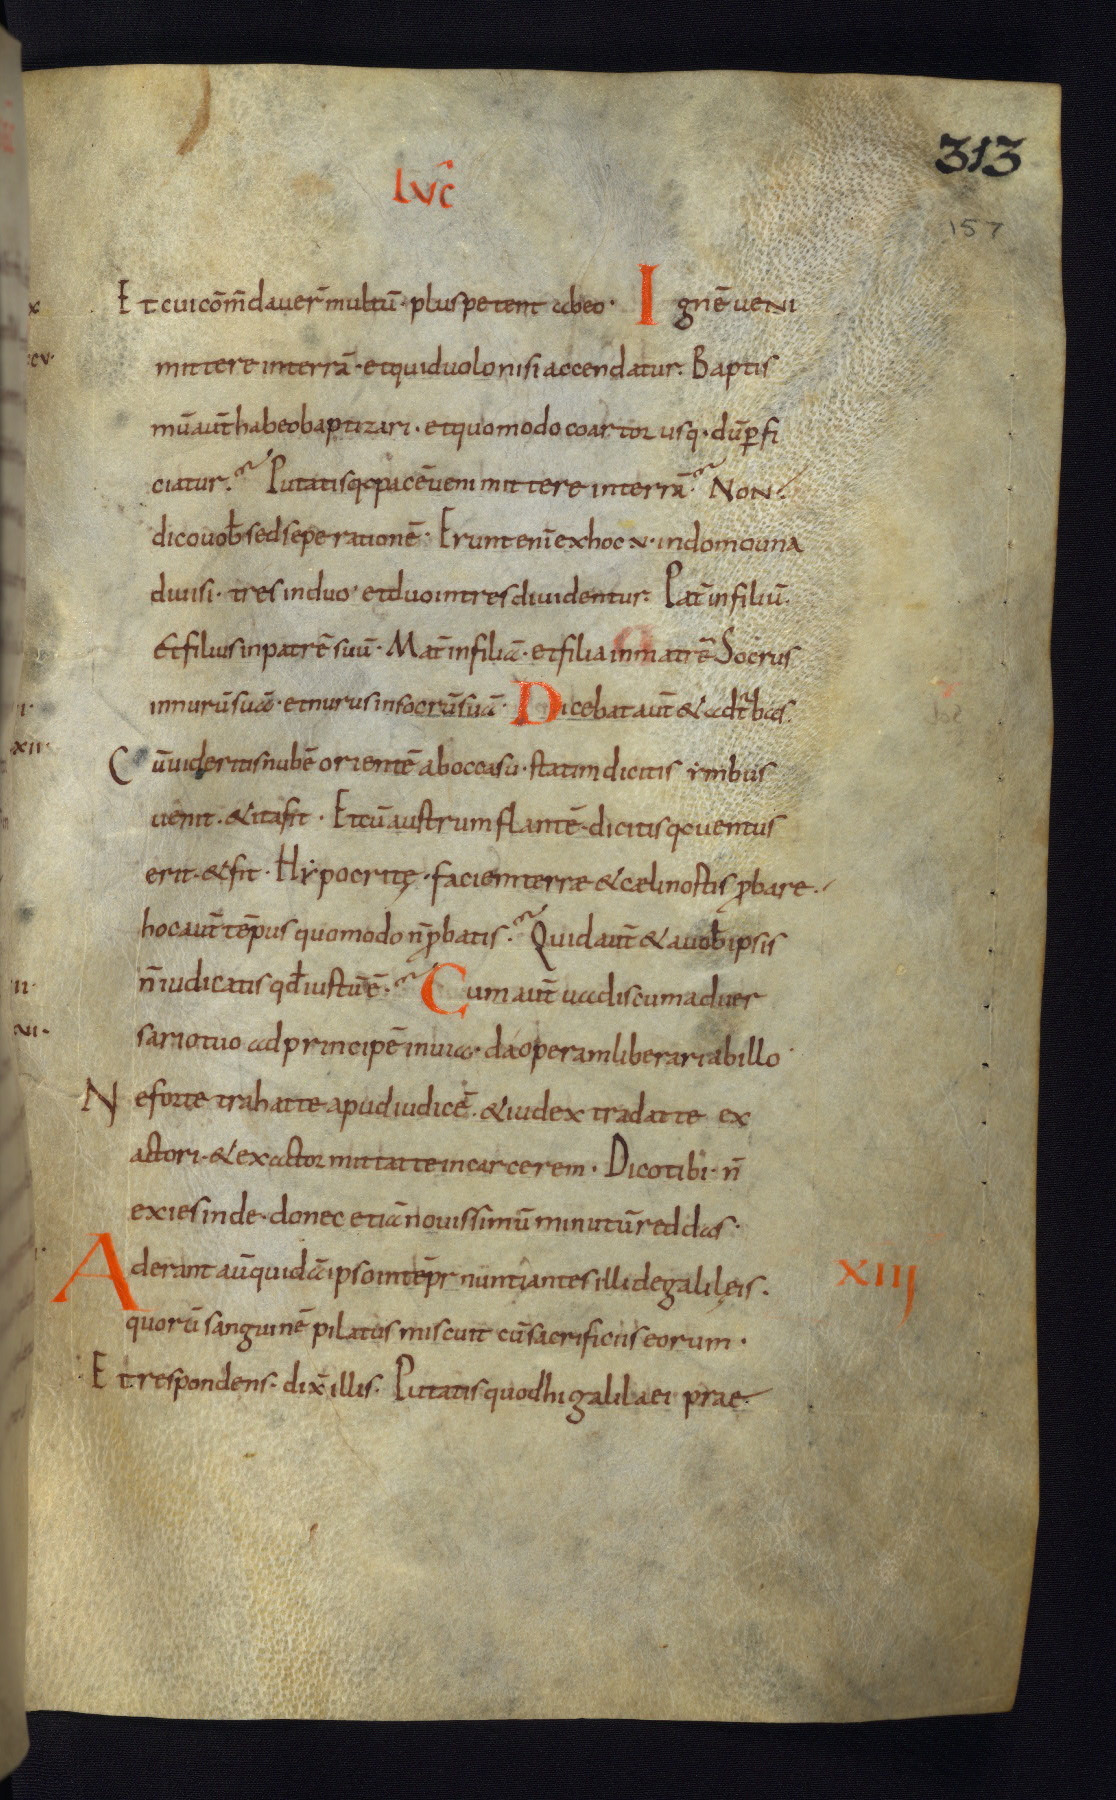 313
LVC̄
157
Et cui cōm̄daver̄ multū· plus petent abeo· Ignē veni
mittere interrā· et quid volo nisi accendatur. Baptis
mū aut̄ habeo baptizari· et quomodo coartor usq· dū ꝑfi
ciatur. Putatis qꝛ pacē veni mittere interrā· Non
dico vob̄ sed seperationē· Erunt enī ex hoc v· in domo una
divisi· tres in duo· et duo in tres dividentur. Pat̄ in filiū·
Et filius in patrē suū· Mat̄ in filiā· et filia in matrē Socrus
in nurū suā· et nurus in socrū suā· Dicebat aut̄ & ad t̄bas·
Cū videritis nubē orientē ab occasu· statim dicitis ẏmbus
venit· & ita fit· Et cū austrum flantē· dicitis qꝛ ventus
erit· & fit· Hẏpocritę· faciem terrae & caeli nostis ꝓbare·
hoc aut̄ tēpus quomodo n̄ ꝓbatis· Quid aut̄ & a vob̄ ipsis
n̄ iudicatis qd̄ iustū ē· Cum aut̄ vadis cum adver
sario tuo ad principē in via· da operam liberari ab illo·
Ne forte trahat te apud iudicē· & iudex tradat te ex
actori· & exactor mittat te in carcerem· Dico tibi· n̄
exies inde· donec etiā novissimū minutū reddas·
Aderant aū quidā ipso in tēpr nuntiantes illi de galileis·
XIII
quorū sanguinē pilatus miscuit cū sacrificiis eorum·
Et respondens· dix̄ illis· Putatis quod hi galilaei prae